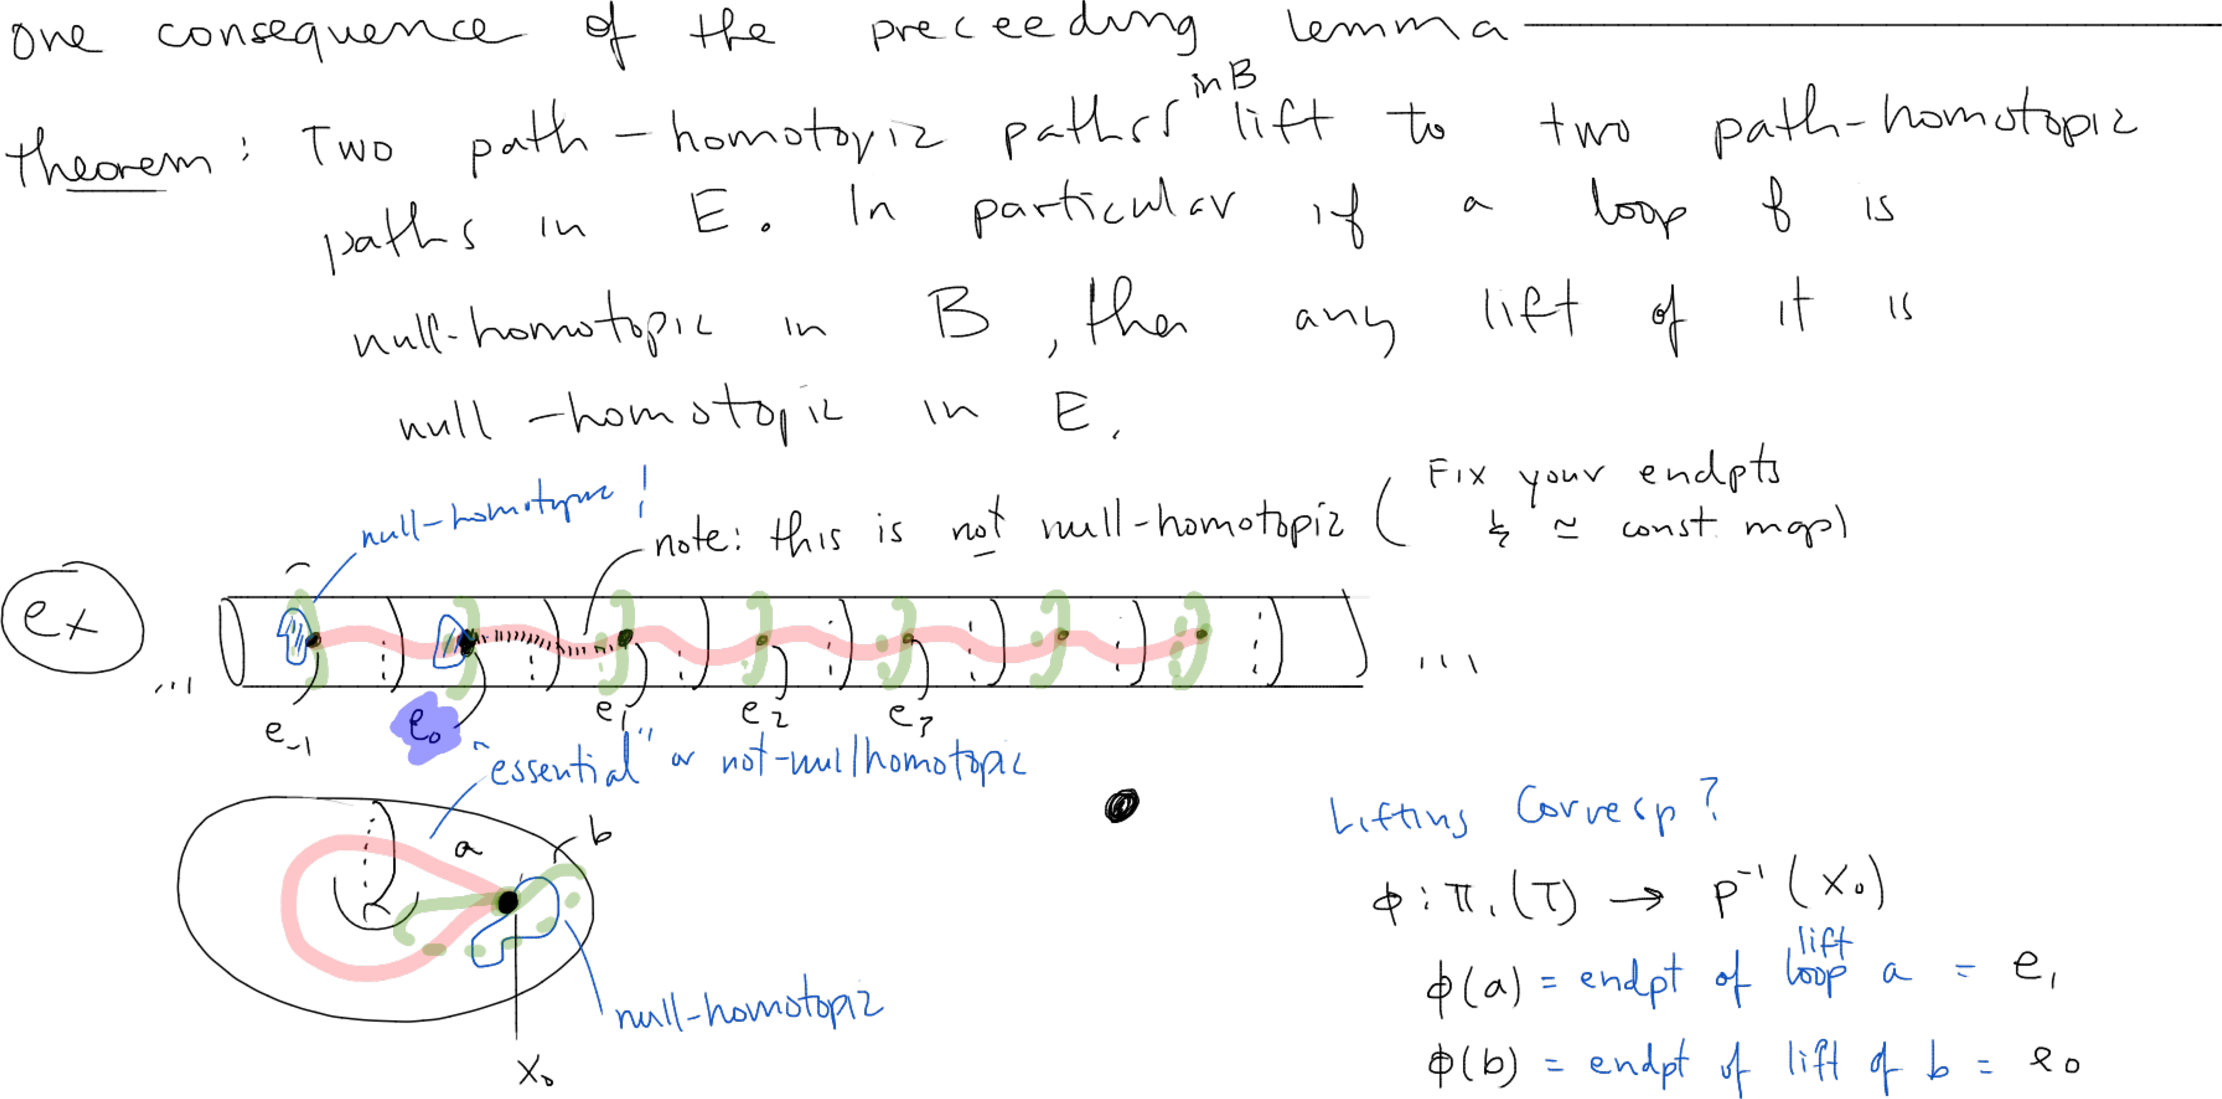 one consequence of the preceeding lemma
theorem: Two path-homotopic paths in B lift to two path-homotopic
paths in E. In particular if a loop f is
null-homotopic in B, then any lift of it is
null-homotopic in E.
Fix your endpts
null-homotopic! note: this is not null-homotopic ( & ≃ const. map)
ex
... ...
e₋₁ e₀ e₁ e₂ e₃
"essential" or not-nullhomotopic
a b
Lifting Corresp?
ϕ: π₁(T) → p⁻¹(x₀)
lift
ϕ(a) = endpt of loop a = e₁
null-homotopic
ϕ(b) = endpt of lift of b = e₀
x₀